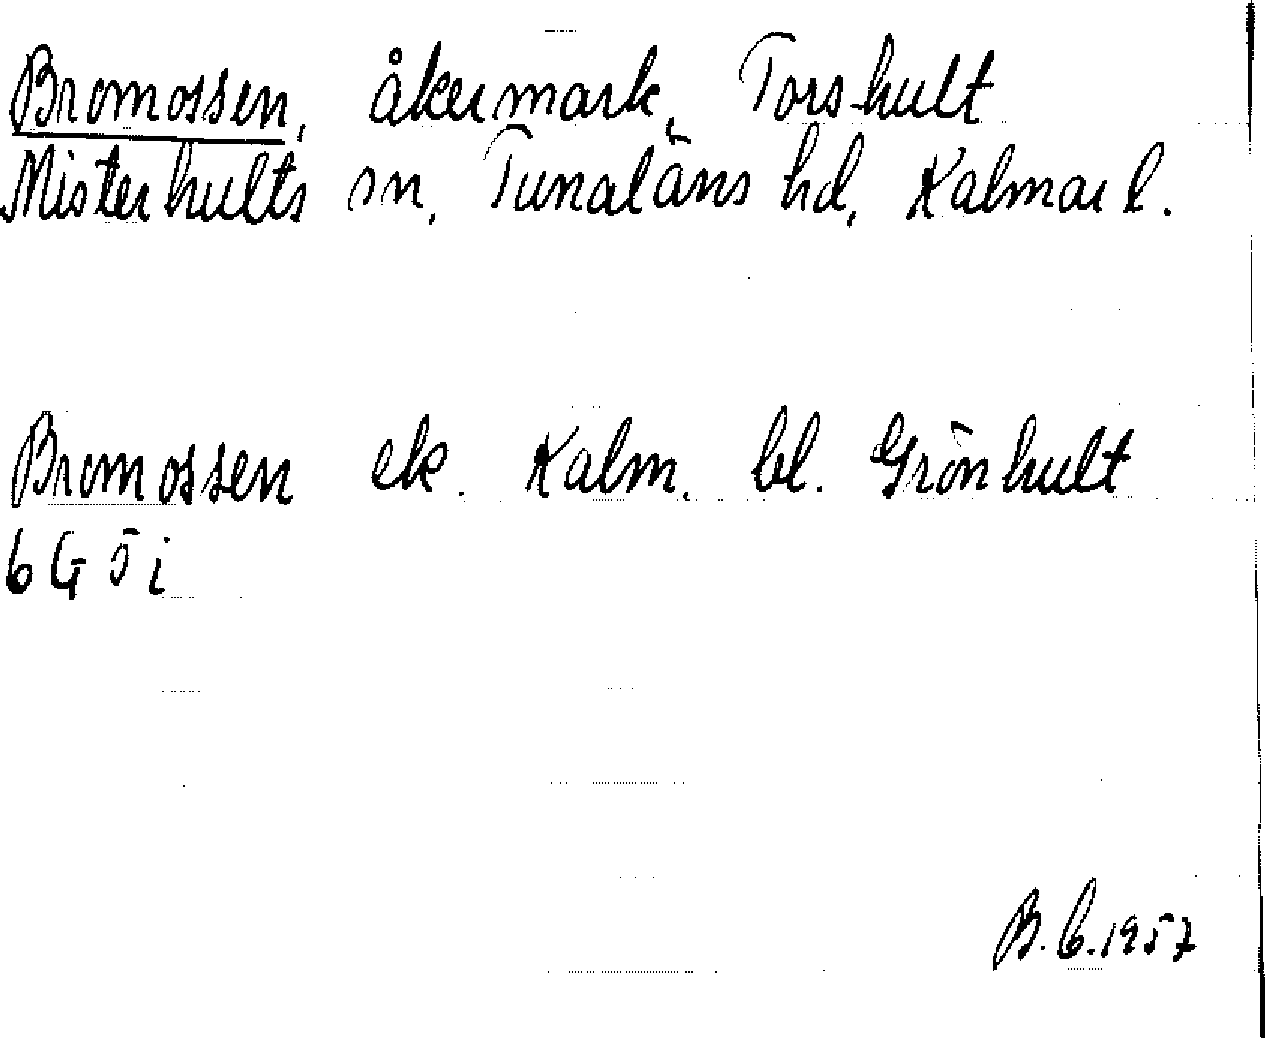 Bromossen, åkermark, Torshult
Misterhults sn, Tunaläns hd, Kalmar l.
Bromossen ek. Kalm. bl. Grönhult
6 G 5 i
B. C. 1957